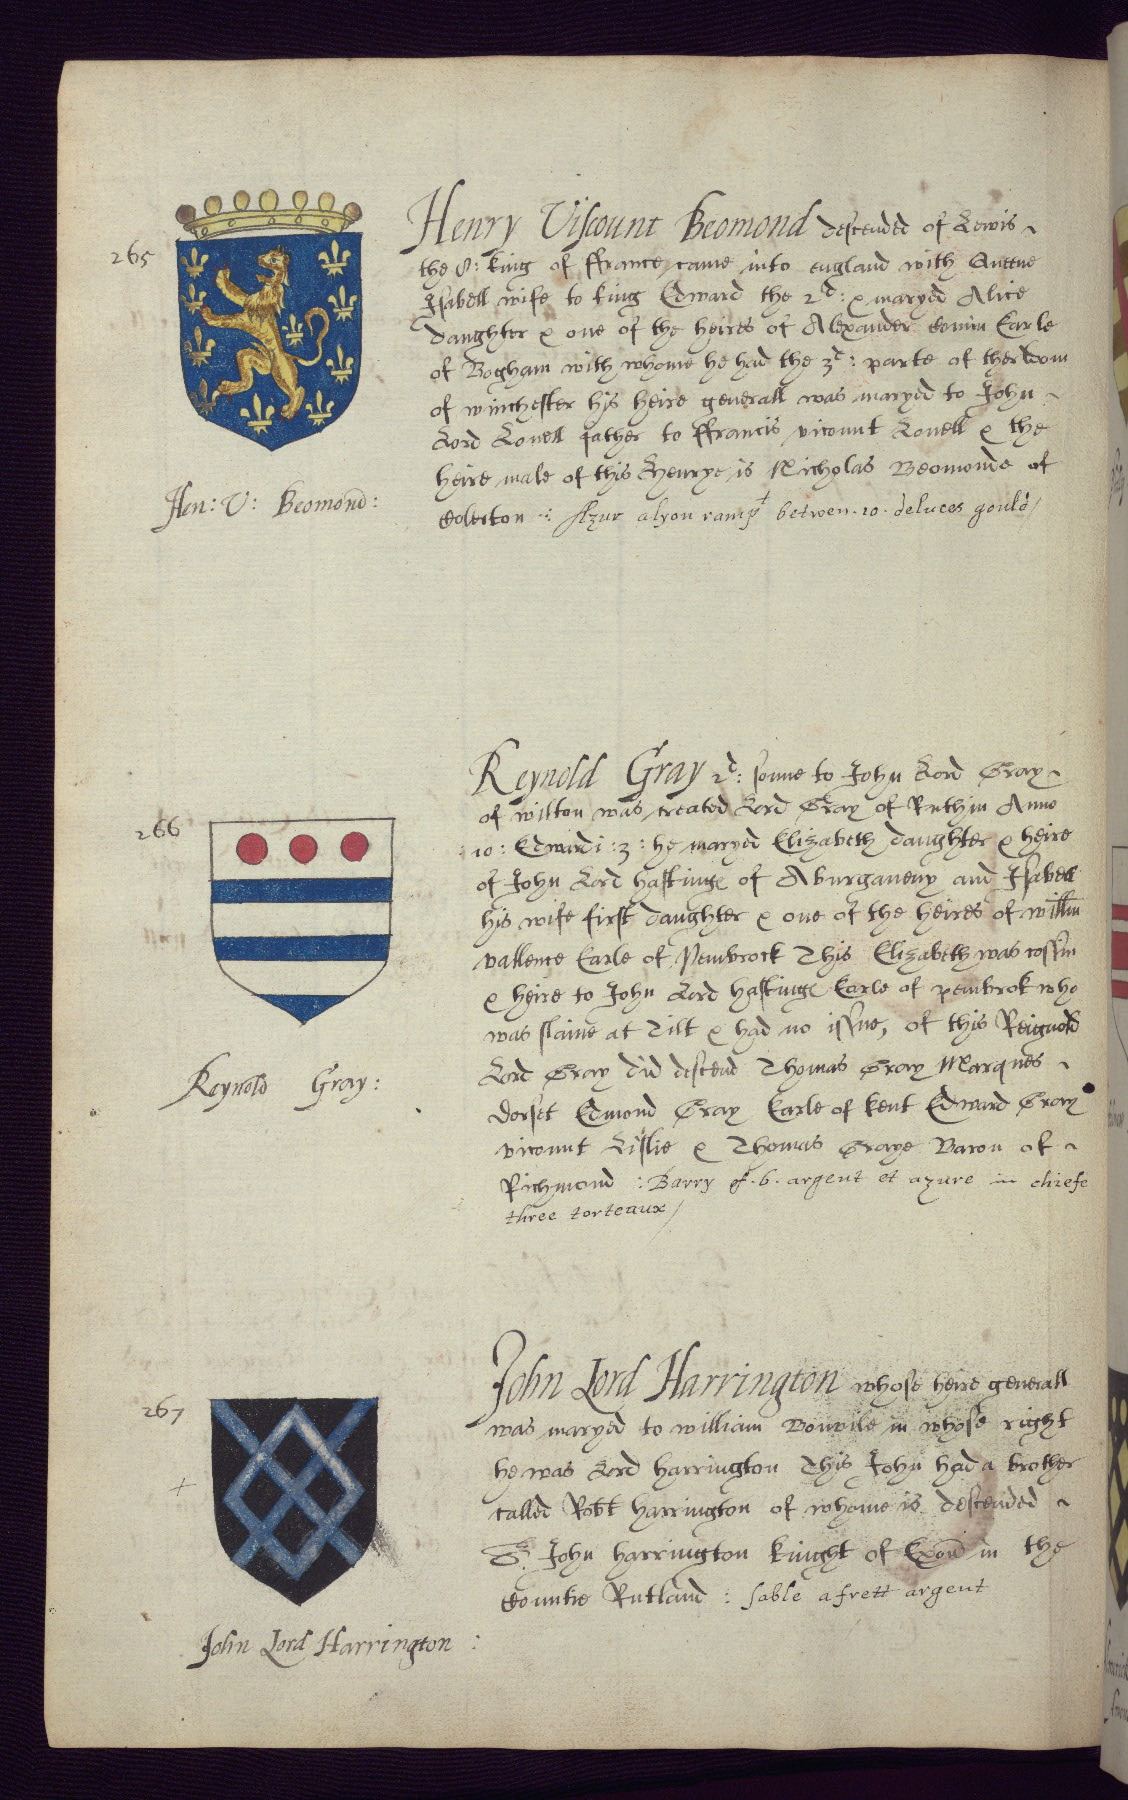 265
Henry Viscount Beomond descended of Lewis
the 8: king of ffrance came into england with Queene
Isabell wife to king Edward the 2d: & maryed Alice
daughter & one of the heires of Alexander Comin Earle
of Bogham with whome he had the 3d: parte of therldom
of winchester his heire generall was maryed to John
Lord Lovell father to ffrancis vicount Lovell & the
heire male of this Henrye is Nicholas Beomonde of
Colerton : Azur a lyon rampt betwen .10. deluces gould/
Hen: V: Beomond:
266
Reynold Gray 2d: sonne to John Lord Gray
of wilton was created Lord Gray of Ruthin Anno
10: Edwardi: 3: he maryed Elizabeth daughter & heire
of John Lord hastinge of Aburgaueny and Isabell
his wife first daughter & one of the heires of willm
vallence Earle of Pembrock This Elizabeth was cossin
& heire to John Lord hastinge Earle of pembrok who
was slaine at Tilt & had no issue, of this Reignold
Lord Gray did descend Thomas Gray Marques
dorset Edmond Gray Earle of kent Edward Gray
vicount Lislie & Thomas Graye Baron of
Richmond : Barry of .6. argent et azure in chiefe
three torteaux/
Reynold Gray:
267
John Lord Harrington whose heire generall
was maryed to william Bonvile in whose right
he was Lord harrington This John had a brother
called Robt harrington of whome is descended
Sr. John harrington knight of Exon in the
Countie Rutland : Sable a frett argent
John Lord Harrington :